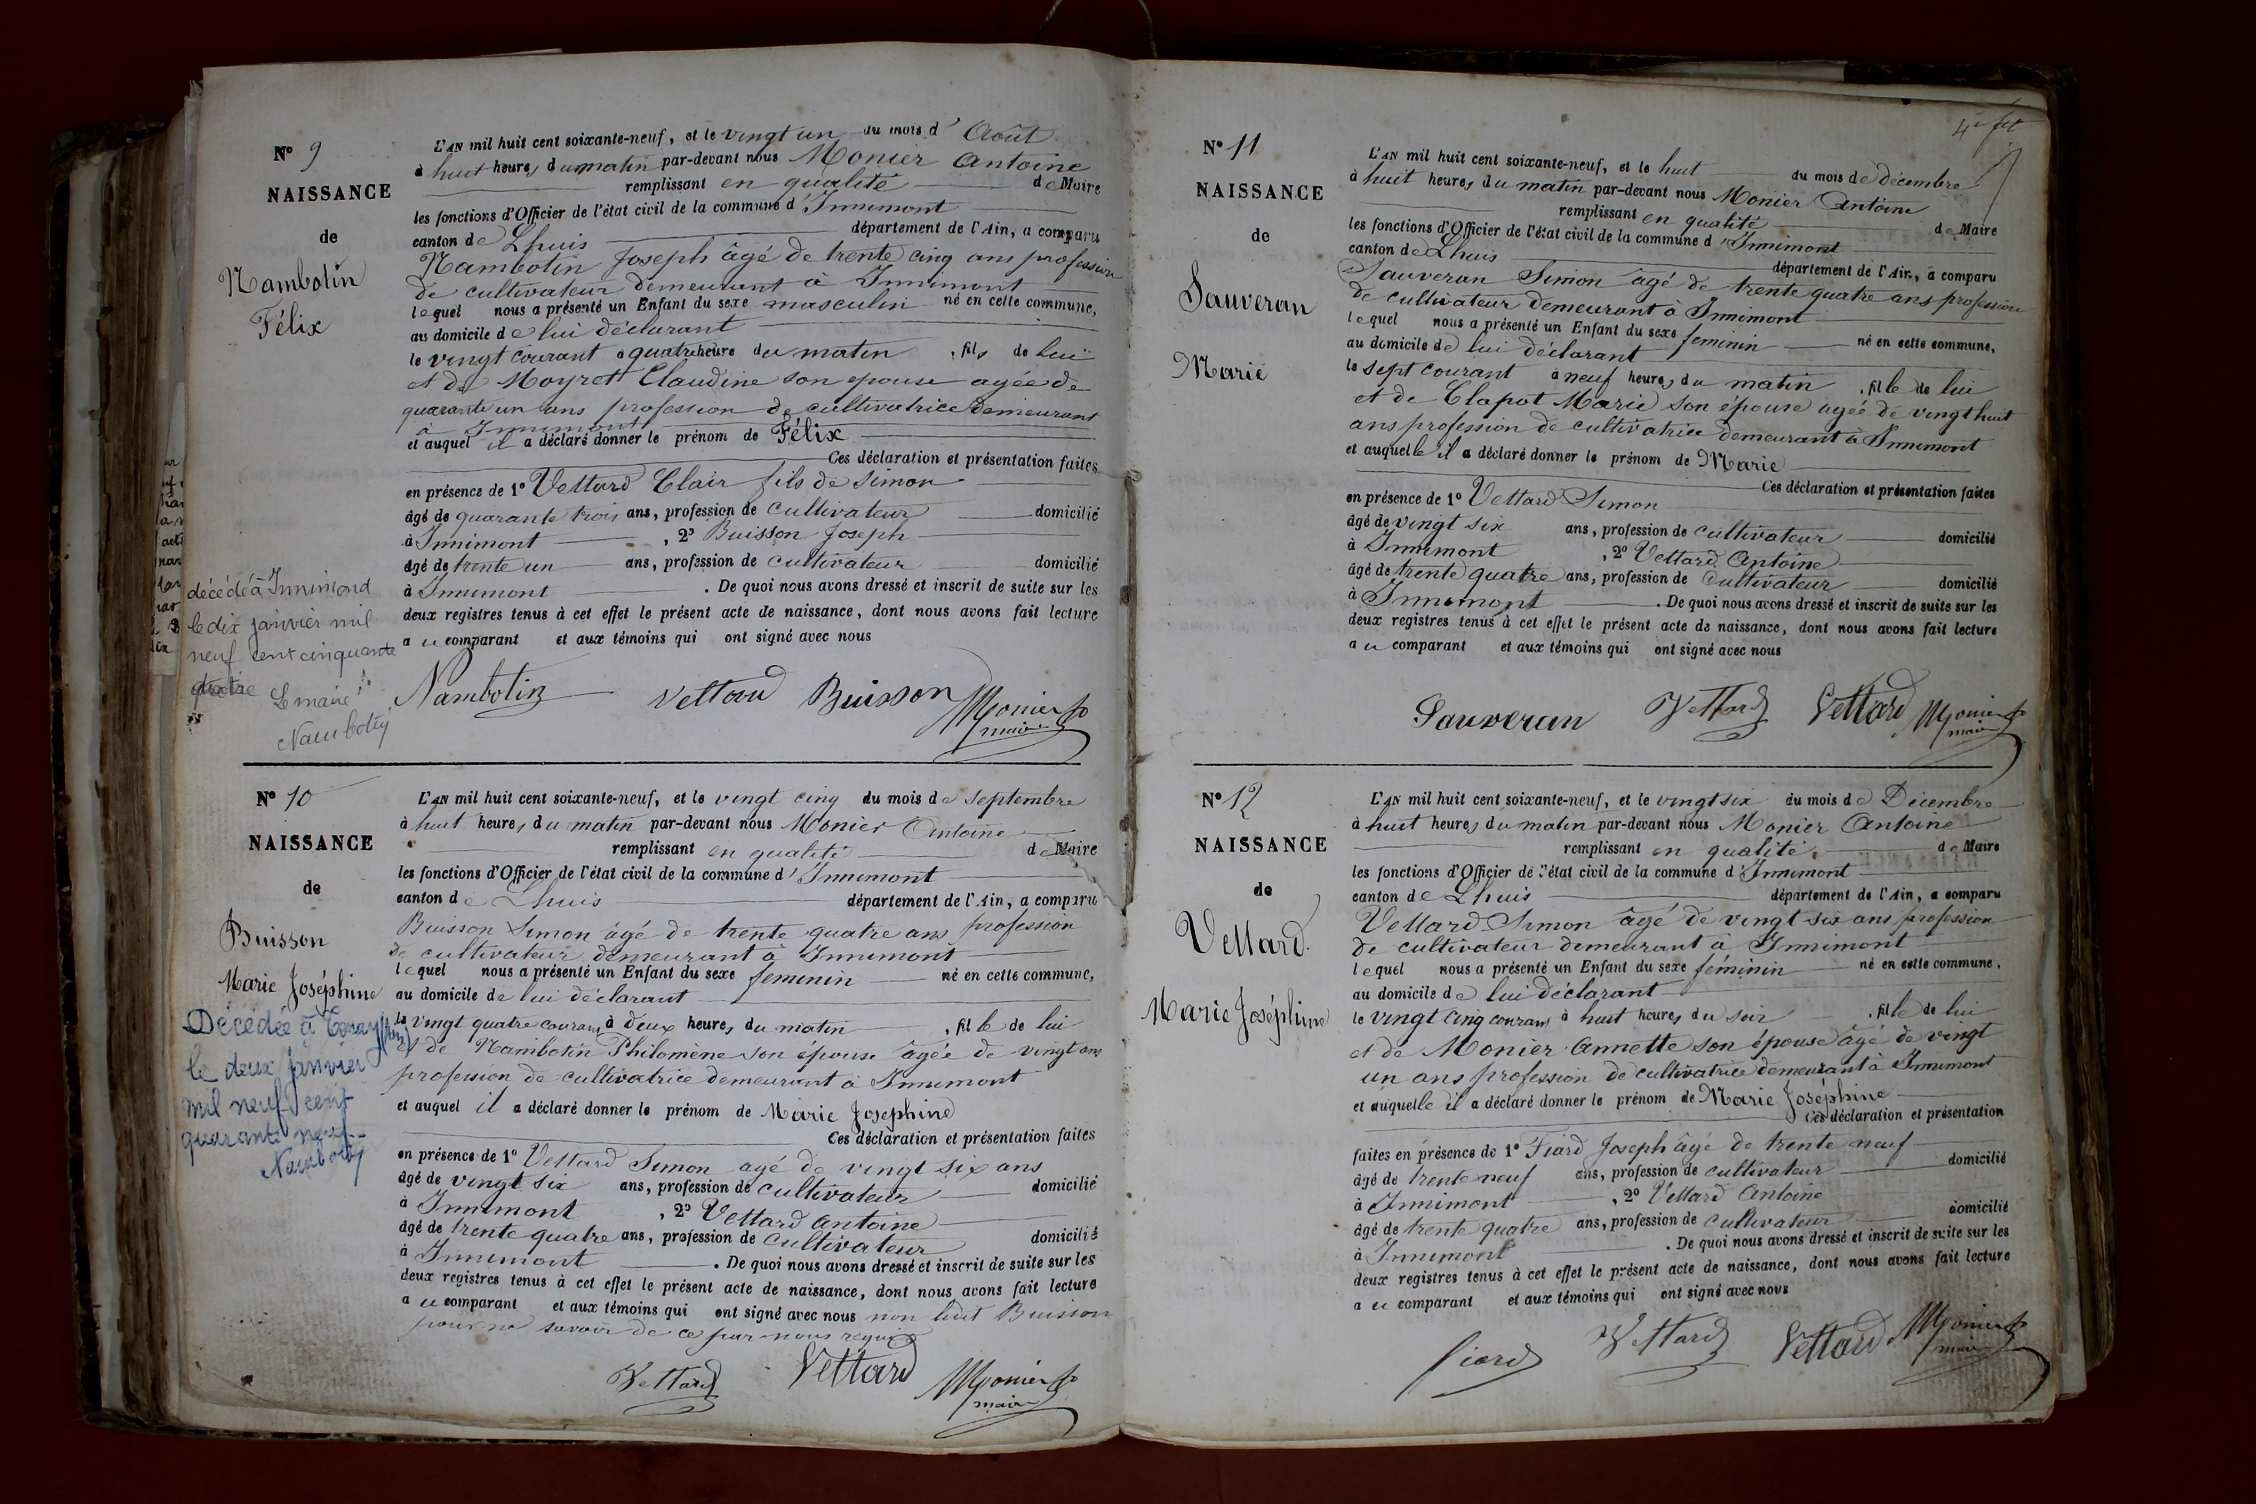 N° 9
NAISSANCE
de
Nambotin
Félix
L'AN mil huit cent soixante-neuf, et le vingt un du mois d' Août
à huit heures du matin par-devant nous Monier Antoine
remplissant en qualité de Maire
les fonctions d'Officier de l'état civil de la commune d'Innimont
canton de Lhuis département de l'Ain, a comparu
Nambotin Joseph âgé de trente cinq ans profession
de cultivateur demeurant à Innimont
lequel nous a présenté un Enfant du sexe masculin né en cette commune,
au domicile de lui déclarant
le vingt courant à quatre heure du matin, fils de lui
et de Moyret Claudine son epouse agée de
quarante un ans profession de cultivatrice demeurant
à Innimont
et auquel il a déclaré donner le prénom de Félix
Ces déclaration et présentation faites
en présence de 1° Vettard Clair fils de Simon
âgé de quarante trois ans, profession de cultivateur domicilié
à Innimont, 2° Buisson Joseph
âgé de trente un ans, profession de cultivateur domicilié
à Innimont. De quoi nous avons dressé et inscrit de suite sur les
deux registres tenus à cet effet le présent acte de naissance, dont nous avons fait lecture
au comparant et aux témoins qui ont signé avec nous
Nambotin Vettard Buisson Monier
maire
décédé à Innimond
le dix janvier mil
neuf cent cinquante
quatre Le maire
Nambotin
N° 10
NAISSANCE
de
Buisson
Marie Joséphine
Décédée à Tenay (Ain)
le deux Janvier
mil neuf cent
quarante neuf
Nambotin
L'AN mil huit cent soixante-neuf, et le vingt cinq du mois de septembre
à huit heures du matin par-devant nous Monier Antoine
remplissant en qualité de Maire
les fonctions d'Officier de l'état civil de la commune d'Innimont
canton de Lhuis département de l'Ain, a comparu
Buisson Simon âgé de trente quatre ans profession
de cultivateur demeurant à Innimont
lequel nous a présenté un Enfant du sexe feminin né en cette commune,
au domicile de lui déclarant
le vingt quatre courant à deux heures du matin, fille de lui
et de Nambotin Philomène son épouse âgée de vingt ans
profession de cultivatrice demeurant à Innimont
et auquel il a déclaré donner le prénom de Marie Joséphine
Ces déclaration et présentation faites
en présence de 1° Vettard Simon agé de vingt six ans
âgé de vingt six ans, profession de cultivateur domicilié
à Innimont, 2° Vettard Antoine
âgé de trente quatre ans, profession de cultivateur domicilié
à Innimont. De quoi nous avons dressé et inscrit de suite sur les
deux registres tenus à cet effet le présent acte de naissance, dont nous avons fait lecture
au comparant et aux témoins qui ont signé avec nous non ledit Buisson
pour ne savoir de ce par nous requis
Vettard Vettard Monier
maire
4e ft
N° 11
NAISSANCE
de
Sauveran
Marie
L'AN mil huit cent soixante-neuf, et le huit du mois de décembre
à huit heures du matin par-devant nous Monier Antoine
remplissant en qualité de Maire
les fonctions d'Officier de l'état civil de la commune d'Innimont
canton de Lhuis département de l'Ain, a comparu
Sauveran Simon âgé de trente quatre ans profession
de cultivateur demeurant à Innimont
lequel nous a présenté un Enfant du sexe feminin né en cette commune,
au domicile de lui déclarant
le sept courant à neuf heures du matin, fille de lui
et de Clapot Marie son épouse agée de vingt huit
ans profession de cultivatrice demeurant à Innimont
et auquelle il a déclaré donner le prénom de Marie
Ces déclaration et présentation faites
en présence de 1° Vettard Simon
âgé de vingt six ans, profession de cultivateur domicilié
à Innimont, 2° Vettard Antoine
âgé de trente quatre ans, profession de cultivateur domicilié
à Innimont. De quoi nous avons dressé et inscrit de suite sur les
deux registres tenus à cet effet le présent acte de naissance, dont nous avons fait lecture
au comparant et aux témoins qui ont signé avec nous
Sauveran Vettard Vettard Monier
maire
N° 12
NAISSANCE
de
Vettard
Marie Joséphine
L'AN mil huit cent soixante-neuf, et le vingt six du mois de Décembre
à huit heures du matin par-devant nous Monier Antoine
remplissant en qualité de Maire
les fonctions d'Officier de l'état civil de la commune d'Innimont
canton de Lhuis département de l'Ain, a comparu
Vettard Simon âgé de vingt six ans profession
de cultivateur demeurant à Innimont
lequel nous a présenté un Enfant du sexe féminin né en cette commune.
au domicile de lui déclarant
le vingt cinq courant à huit heures du soir, fille de lui
et de Monier Annette son épouse âgé de vingt
un ans profession de cultivatrice demeurant à Innimont
et auquelle il a déclaré donner le prénom de Marie Joséphine
Ces déclaration et présentation
faites en présence de 1° Fiard Joseph âgé de trente neuf
âgé de trente neuf ans, profession de cultivateur domicilié
à Innimont, 2° Vettard Antoine
âgé de trente quatre ans, profession de cultivateur domicilié
à Innimont. De quoi nous avons dressé et inscrit de suite sur les
deux registres tenus à cet effet le présent acte de naissance, dont nous avons fait lecture
au comparant et aux témoins qui ont signé avec nous
Fiard Vettard Vettard Monier
maire